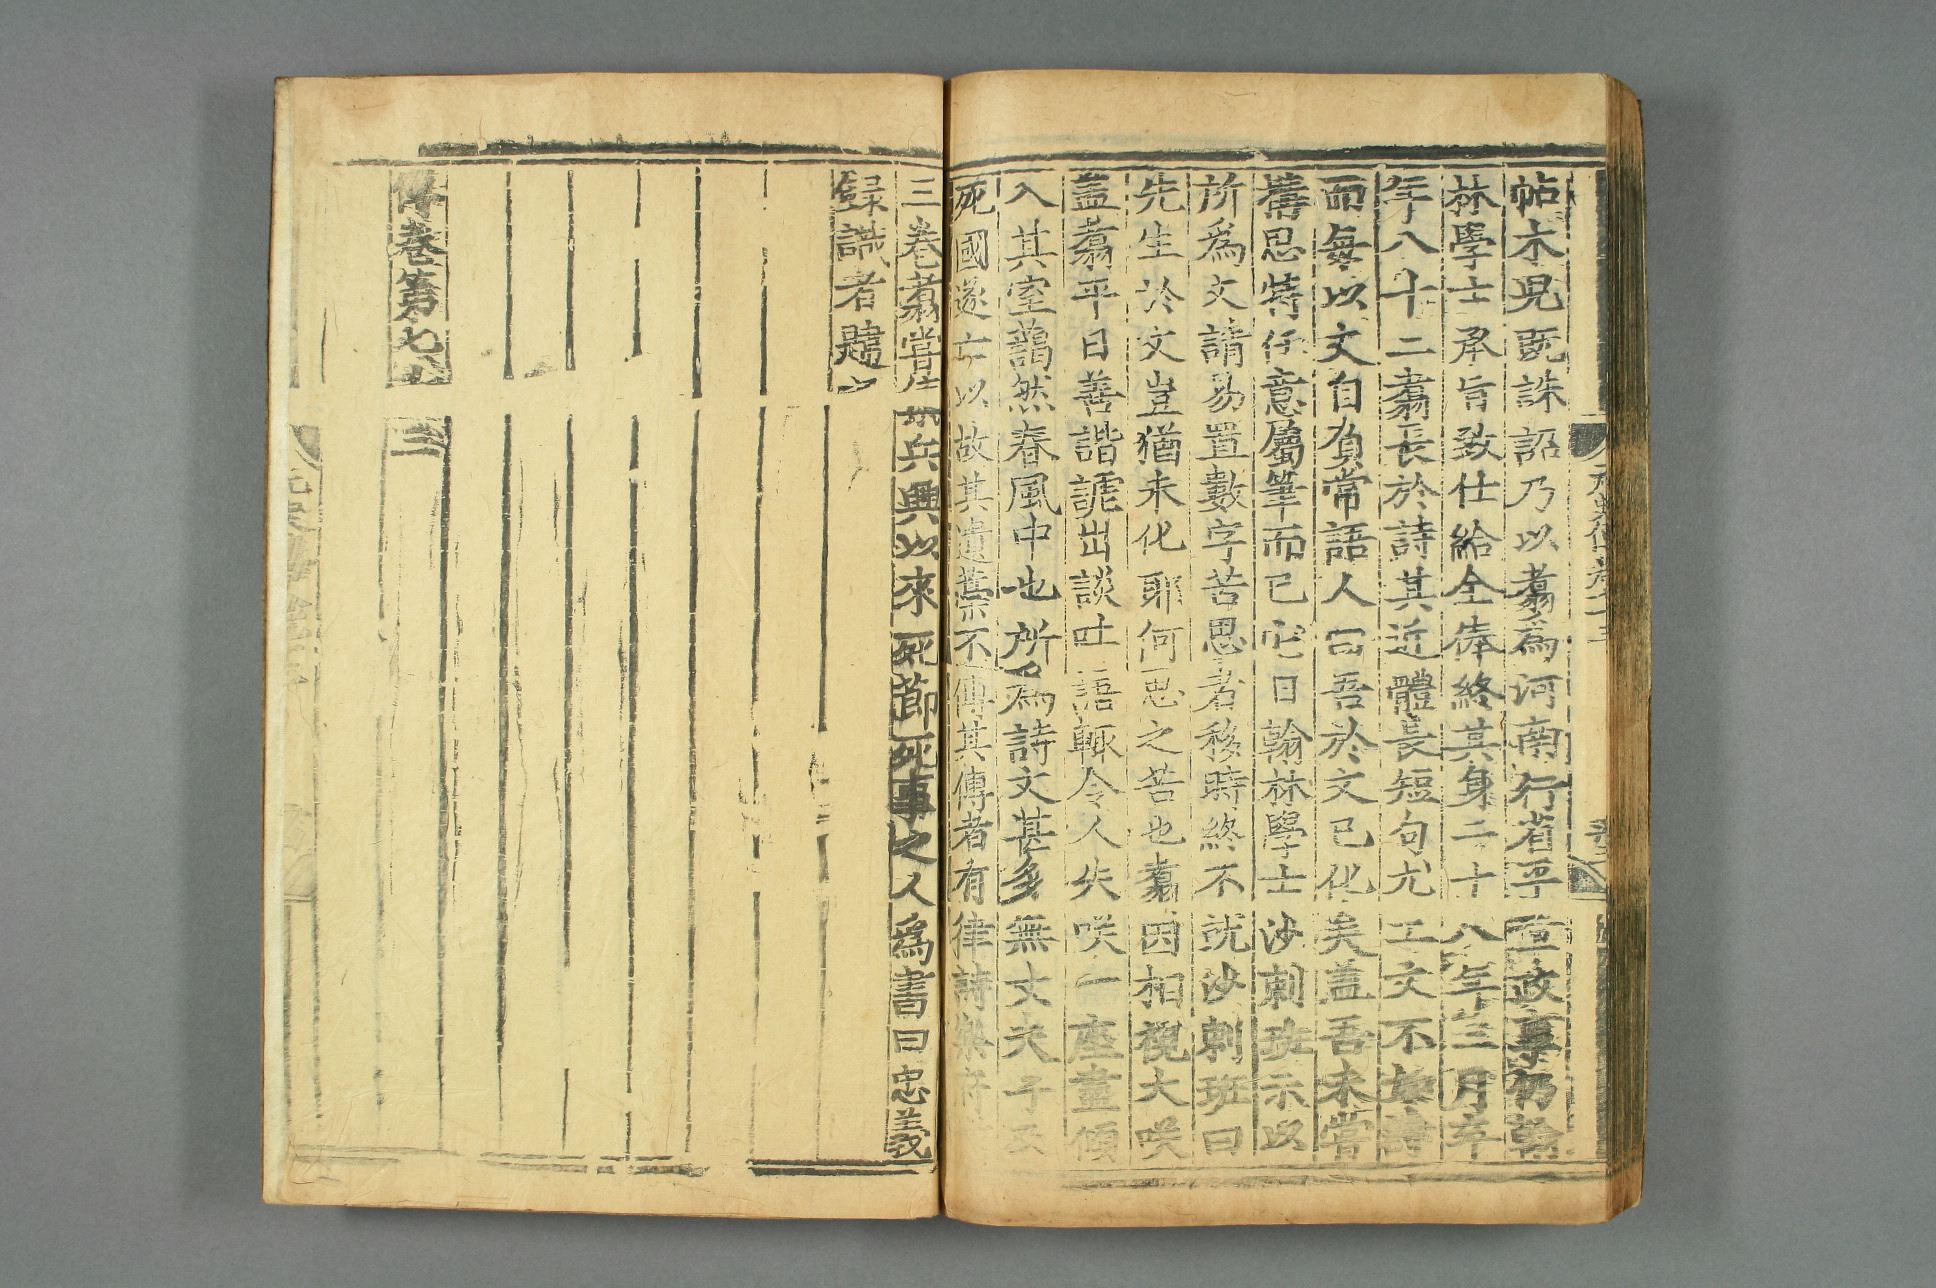 帖木兒既誅詔乃以翥為河南行省平章政事仍翰
林學士承旨致仕給全俸終其身二十八年三月卒
年八十二翥長於詩其近體長短句尤工文不如詩
而每以文自負常語人曰吾於文已化矣蓋吾未嘗
搆思特任意屬筆而已它日翰林學士沙剌班示以
所為文請易置數字苦思者移時終不就沙剌班曰
先生於文豈猶未化耶何思之苦也翥因相視大咲
蓋翥平日善諧謔出談吐語輒令人失咲一座盡傾
入其室藹然春風中也所為詩文甚多無丈夫子及
死國遂亡以故其遺藁不傳其傳者有律詩樂府
三卷翥嘗集兵興以來死節死事之人為書曰忠義
録識者韙之
傳卷第七十三